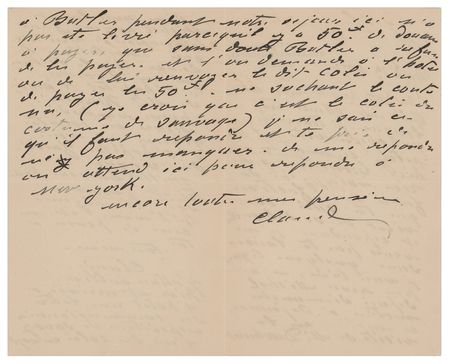 à Butler pendant notre séjour ici n'a
pas été livré parcequ'il y a 50 de douane
à payer, que sans doute Butler a refusé
de les payer. et l'on demande si l'hotel
ou de lui renvoyer le dit colis ou
de payer les 50 . ne sachant le conte
nu, (je crois que c'est le colis du
costume de sauvage) je ne sais ce
qu'il faut repondre et te prie de
ne pas manquer de me repondre
on attend ici pour repondre à
New York.
encore toutes mes pensées
Claude